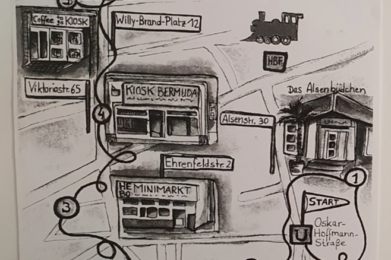 Coffee KIOSK
Willy-Brand-Platz 12
HBF
Viktoriastr 65
KIOSK BERMUDA
Das Alsenbüdchen
4
Alsenstr. 30
Ehrenfeldstr 2
MINIMARKT
1
START
3
U
Oskar-
Hoffmann-
Straße